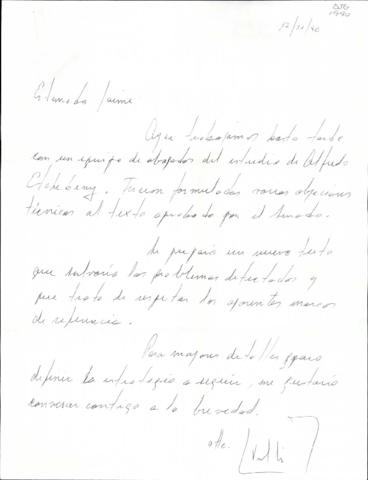 DJG
1990
17/10/90
Estimado Jaime
Ayer trabajamos hasta tarde
con un equipo de abogados del estudio de Alfredo
Etcheberry. Fueron formuladas varias objeciones
técnicas al texto aprobado por el Senado.
Se preparó un nuevo texto
que salvaría los problemas detectados y
que trata de respetar los
de referencia.
Para mayores detalles y para
definir la estrategia a seguir, me gustaría
conversar contigo a la brevedad.
atte.